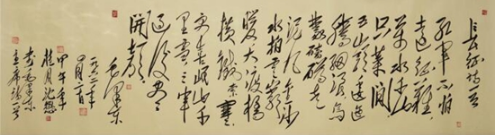 长征詩一首
红軍不怕
遠征難
萬水千山
只等閑
五嶺逶迤
騰細浪烏
蒙磅礴走
泥丸金沙
水拍雲崖
暖大渡橋
横鐵索寒
更喜岷山千
里雪三軍
過後盡
開顏
毛澤東
一九六二年
四月二十日
甲午年